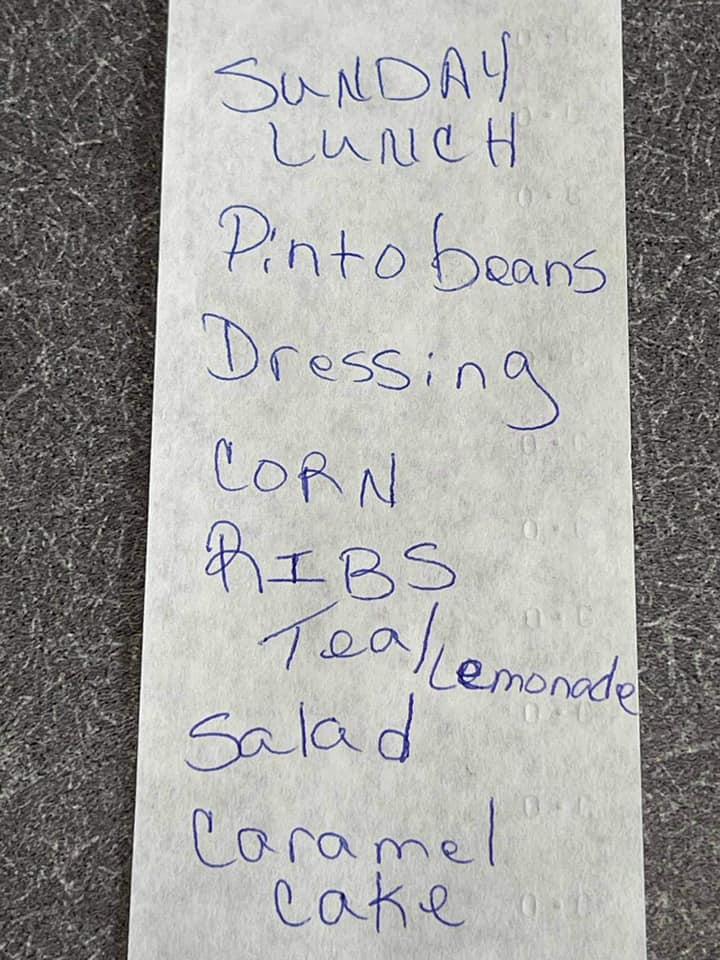 SUNDAY
LUNCH
Pinto beans
Dressing
CORN
RIBS
Tea/Lemonade
Salad
Caramel
Cake